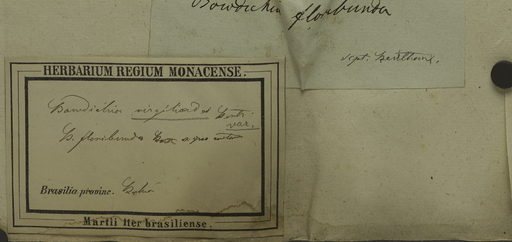 Bowdichia floribunda
sept. Bentham.
HERBARIUM REGIUM MONACENSE.
Bowdichia virgilioides Benth.
var.
B. floribunda
Brasilia provinc. Bahia
Martii Iter brasiliense.